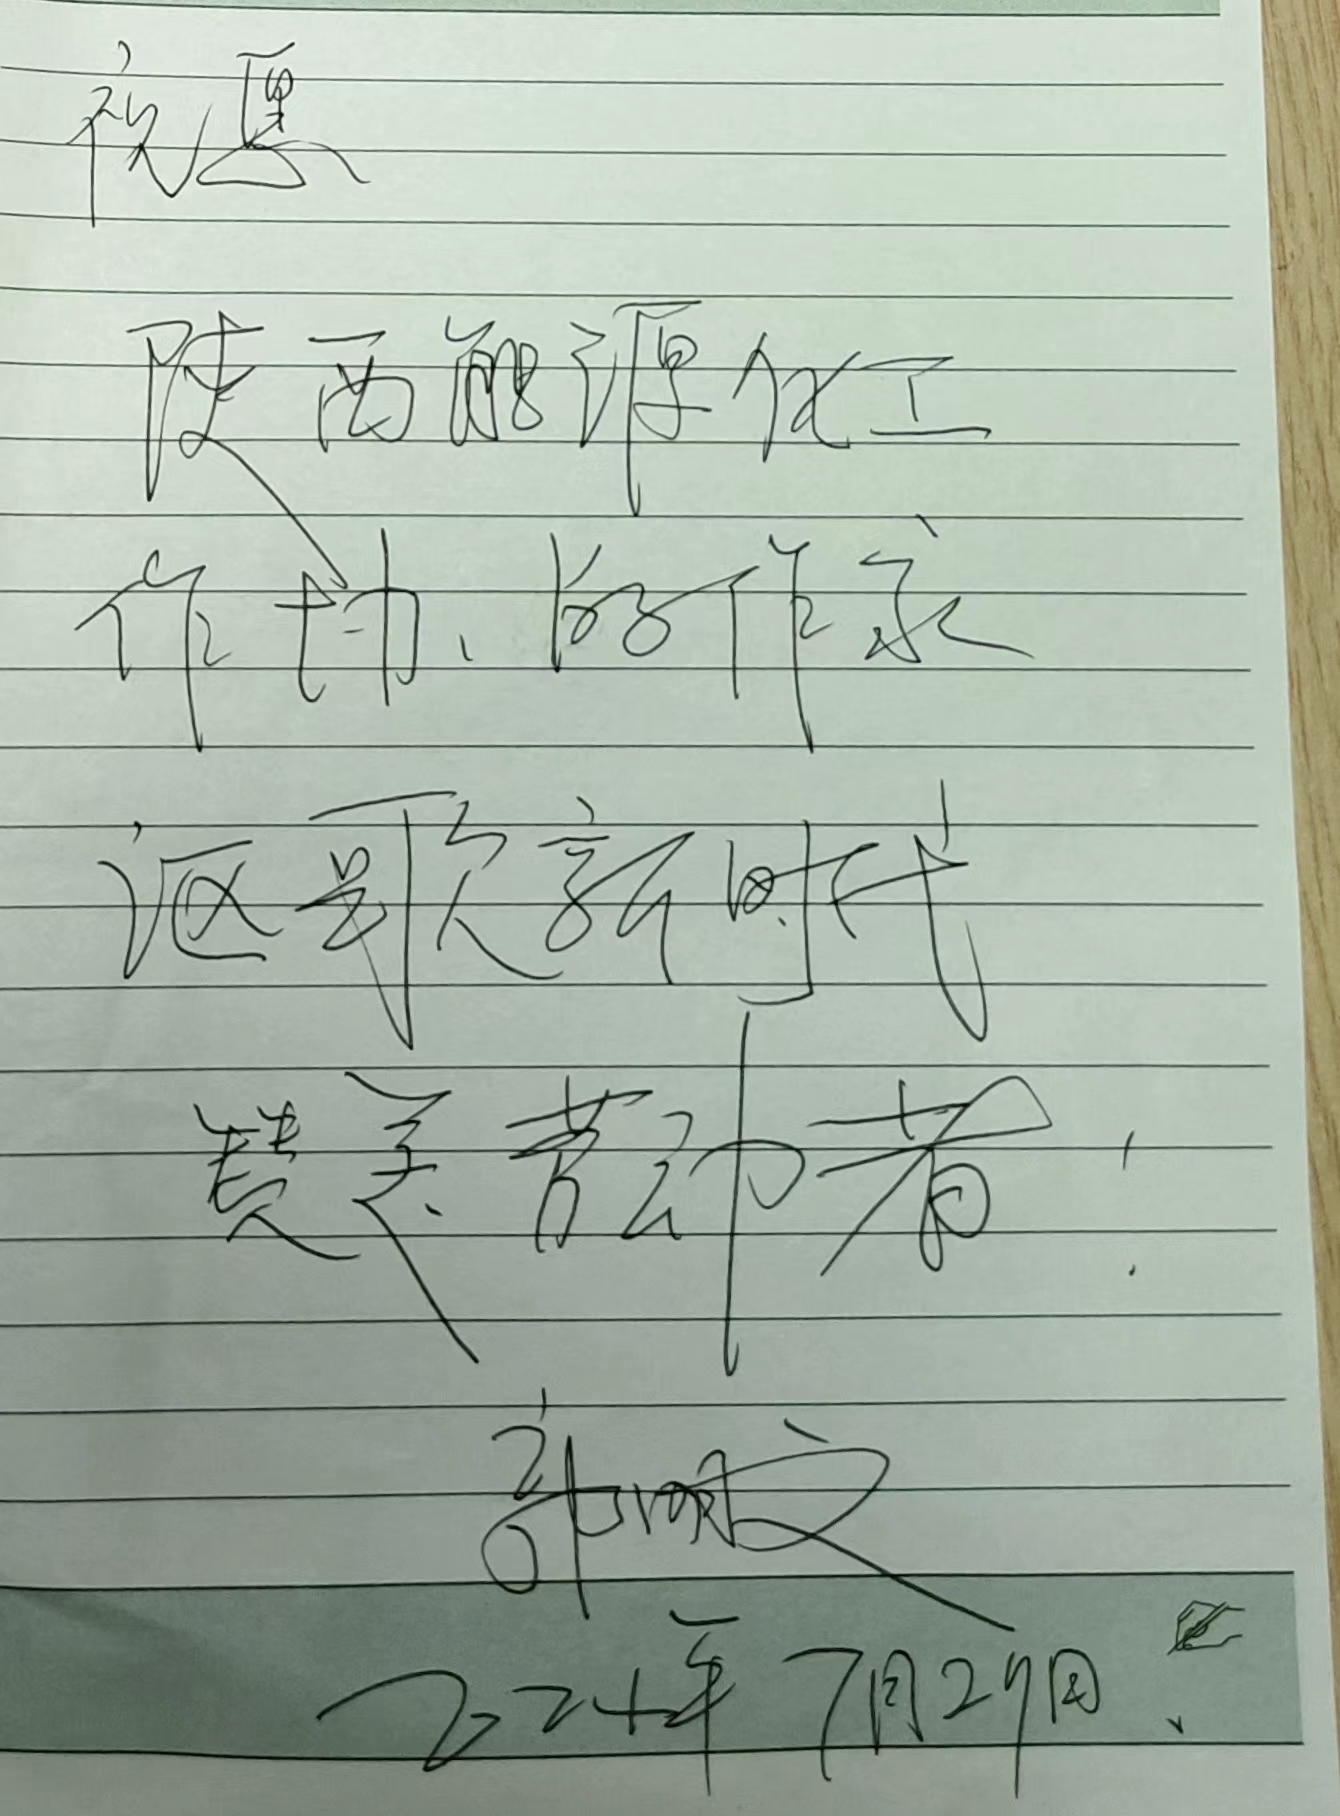 祝愿
陕西能源化工
作协、的作家
讴歌新时代
赞美劳动者！
2024年7月29日